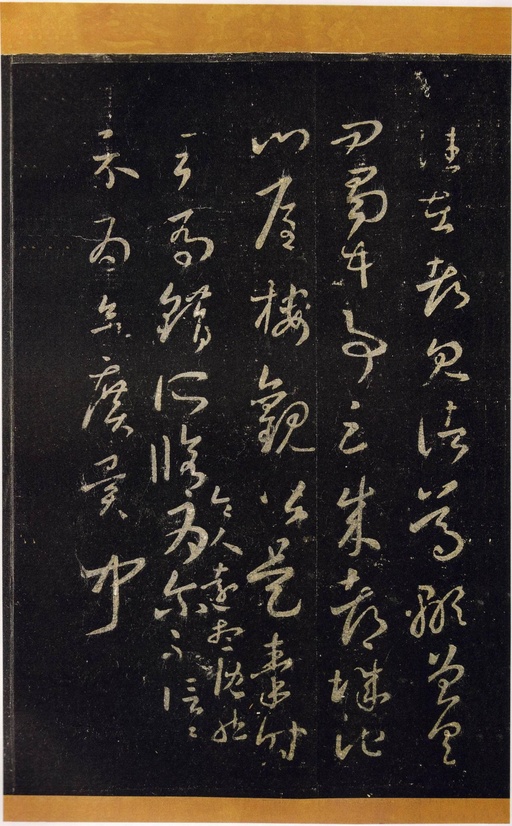 往在都見諸葛顒曾具
問蜀中事云成都城池
門屋樓觀皆是秦時
司馬錯所脩令人遠想慨然為尓不信一一
示為欲廣異聞